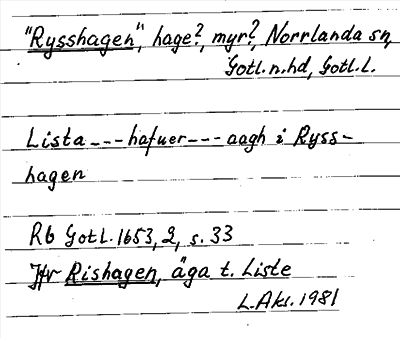 "Rysshagen", hage?, myr?, Norrlanda sn,
Gotl.n.hd, Gotl.l.
Lista --- hafuer --- aagh i Ryss-
hagen
Rb Gotl. 1653, 2, s. 33
Jfr Rishagen, äga t. Liste
L.Aks. 1981